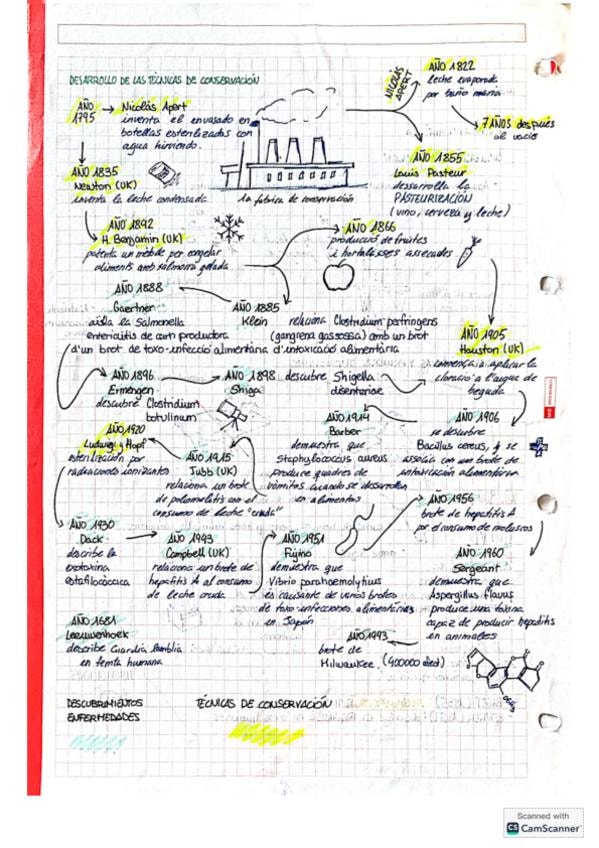 DESARROLLO DE LAS TÉCNICAS DE CONSERVACIÓN
AÑO 1795 → Nicolás Apert
inventa el envasado en
botellas esterilizadas con
agua hirviendo.
1a fabrica de conservación
NICOLÁS APERT
AÑO 1822
leche evaporada
por baño maria
7 AÑOS después
al vacio
AÑO 1855
Louis Pasteur
desarrolla la
PASTEURIZACIÓN
(vino, cerveza y leche)
AÑO 1835
Newton (UK)
inventa la leche condensada
AÑO 1892
H. Benjamin (UK)
patenta un métode per congelar
aliments amb salmorra gelada
AÑO 1866
producció de fruites
i hortalisses assecades
AÑO 1888
Gaertner
aïsla la Salmonella
enteriditis de carn productora
d'un brot de toxo-infecció alimentària
AÑO 1885
Klein relaciona Clostridium perfringens
(gangrena gasssosa) amb un brot
d'intoxicació alimentària
AÑO 1905
Houston (UK)
comença a aplicar la
cloració a l'aigua de
beguda
AÑO 1896
Ermengen
descubre Clostridium
botulinum
AÑO 1898 descubre Shigella
Shiga disenteriae
AÑO 1906
se descubre
Bacillus cereus, y se
associa con un brote de
intoxicación alimentària
AÑO 1914
Barber
demuestra que
Staphylococus aureus
produce quadres de
vómitos cuando se desarrollan
en alimentos
AÑO 1920
Ludwig y Hopf
esterilización por
radiaciones ionizantes
AÑO 1915
Jubb (UK)
relaciona un brote
de poliomelitis con el
consumo de leche "cruda"
AÑO 1956
brote de hepatitis A
por el consumo de moluscos
AÑO 1930
Dack
describe la
exotoxina
estafilocócica
AÑO 1943
Campbell (UK)
relaciona un brote de
hepatitis A al consumo
de leche cruda
AÑO 1951
Fujino
demuestra que
Vibrio parahaemolyticus
es causante de varios brotes
de toxo-infecciones alimentárias
en Japón
AÑO 1960
Sergeant
demuestra que
Aspergillus flavus
produce una toxina
capaz de producir hepatitis
en animales
AÑO 1681
Leeuwenhoek
describe Giardia lamblia
en femta humana
AÑO 1993
brote de
Milwaukee. (400000 afect)
OCH3
DESCUBRIMIENTOS
ENFERMEDADES
TÉCNICAS DE CONSERVACIÓN
Scanned with
CS CamScanner